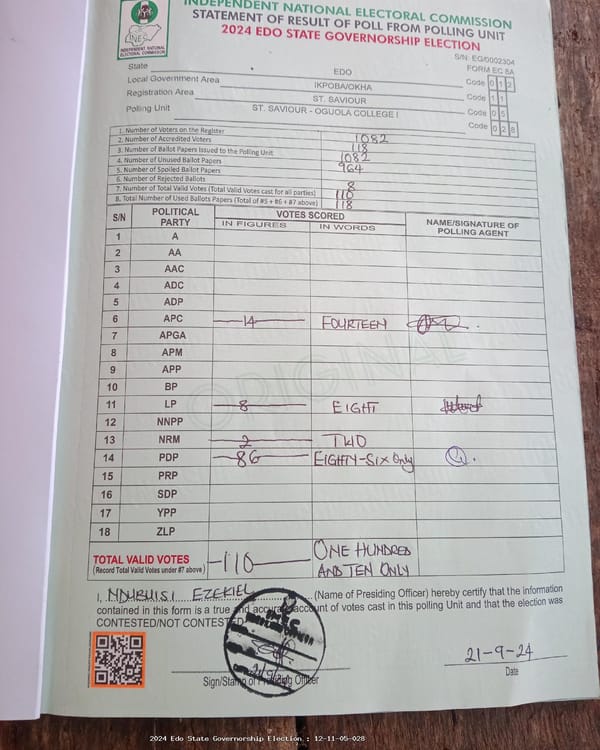 INDEPENDENT NATIONAL ELECTORAL COMMISSION
STATEMENT OF RESULT OF POLL FROM POLLING UNIT
2024 EDO STATE GOVERNORSHIP ELECTION
INEC
INDEPENDENT NATIONAL
ELECTORAL COMMISSION
S/N: EG/0002304
FORM EC 8A
State EDO Code 0 1 2
Local Government Area IKPOBA/OKHA Code 1 1
Registration Area ST. SAVIOUR Code 0 5
Polling Unit ST. SAVIOUR - OGUOLA COLLEGE I Code 0 2 8
1. Number of Voters on the Register 1082
2. Number of Accredited Voters 118
3. Number of Ballot Papers Issued to the Polling Unit 1082
4. Number of Unused Ballot Papers 964
5. Number of Spoiled Ballot Papers
6. Number of Rejected Ballots 8
7. Number of Total Valid Votes (Total Valid Votes cast for all parties) 110
8. Total Number of Used Ballots Papers (Total of #5 + #6 + #7 above) 118
S/N POLITICAL PARTY VOTES SCORED NAME/SIGNATURE OF POLLING AGENT
IN FIGURES IN WORDS
1 A
2 AA
3 AAC
4 ADC
5 ADP
6 APC 14 FOURTEEN
7 APGA
8 APM
9 APP
10 BP
11 LP 8 EIGHT
12 NNPP
13 NRM 2 TWO
14 PDP 86 EIGHTY-SIX Only
15 PRP
16 SDP
17 YPP
18 ZLP
ORIGINAL
TOTAL VALID VOTES 110 ONE HUNDRED
(Record Total Valid Votes under #7 above) AND TEN ONLY
I, NDUBUISI EZEKIEL (Name of Presiding Officer) hereby certify that the information
contained in this form is a true and accurate account of votes cast in this polling Unit and that the election was
CONTESTED/NOT CONTESTED
21-9-24
Sign/Stamp of Presiding Officer Date
2024 Edo State Governorship Election : 12-11-05-028